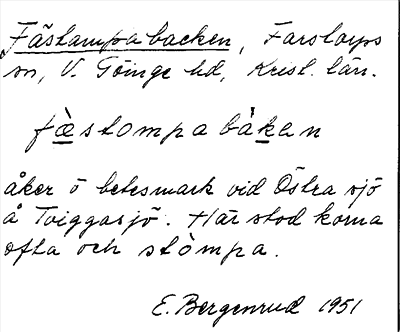 Fästampabacken, Farstorps
sn, V. Göinge hd, Krist. län.
fæ̀stompabàkan
åker ö betesmark vid Östra sjö
å Tviggasjö. Här stod korna
ofta och stòmpa.
E. Bergenrud 1951